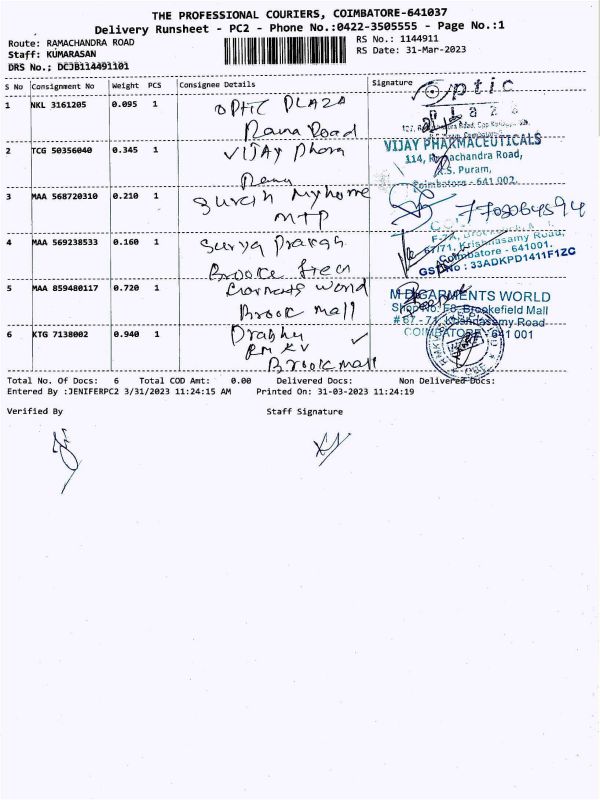 THE PROFESSIONAL COURIERS, COIMBATORE-641037
Delivery Runsheet - PC2 - Phone No.:0422-3505555 - Page No.:1
Route: RAMACHANDRA ROAD
RS No.: 1144911
Staff: KUMARASAN
RS Date: 31-Mar-2023
DRS No.; DCJB114491101
S No Consignment No Weight PCS Consignee Details Signature
1 NKL 3161205 0.095 1 OPTIC PLAZA
Rama Road
Optic
Plaza
2 TCG 50356040 0.345 1 VIJAY
VIJAY PHARMACEUTICALS
114, Ramachandra Road,
R.S. Puram,
Coimbatore - 641 002.
3 MAA 568720310 0.210 1 Suresh Myhome
MTP
4 MAA 569238533 0.160 1 Surya
Brooke
67/71, Krishnasamy Road,
Coimbatore - 641001.
GST No : 33ADKPD1411F1ZC
5 MAA 859480117 0.720 1 Garments World
Brook mall
M D GARMENTS WORLD
Shop No. F8, Brookefield Mall
# 67 - 71, Krishnasamy Road
COIMBATORE - 641 001
6 KTG 7138002 0.940 1 Prabhu
RMKV
Brook mall
Total No. Of Docs: 6 Total COD Amt: 0.00 Delivered Docs: Non Delivered Docs:
Entered By :JENIFERPC2 3/31/2023 11:24:15 AM Printed On: 31-03-2023 11:24:19
Verified By Staff Signature